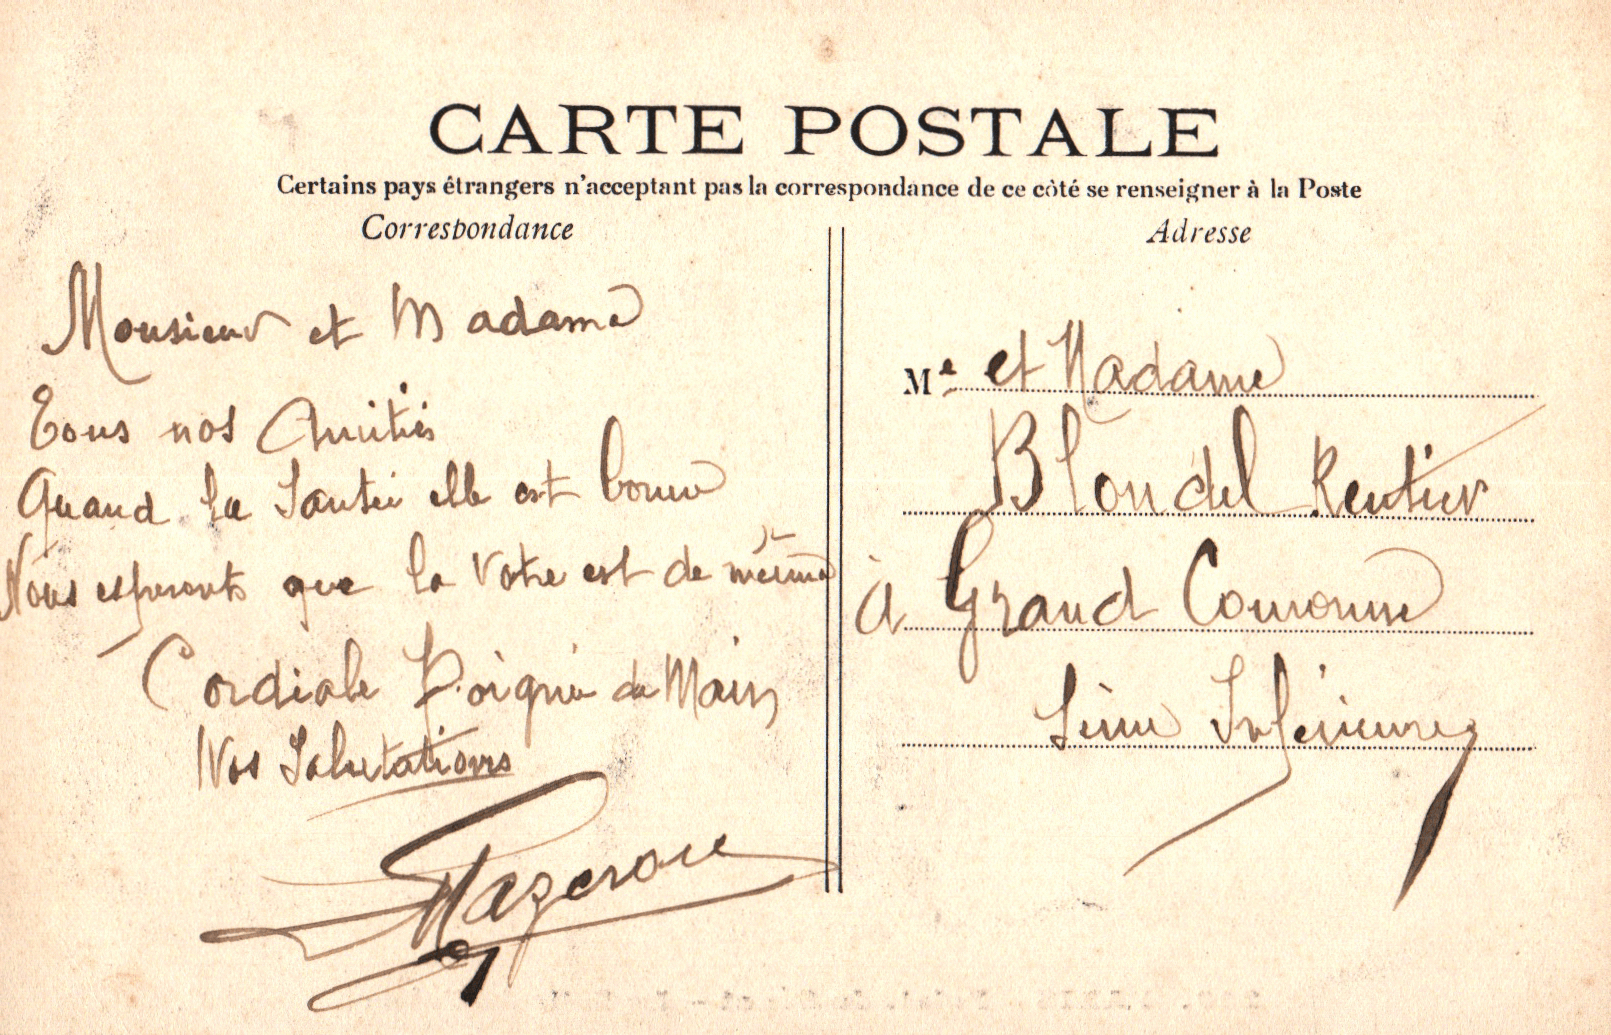 CARTE POSTALE
Certains pays étrangers n'acceptant pas la correspondance de ce côté se renseigner à la Poste
Correspondance
Monsieur et Madame
Tous nos Amitiés
Quand la Santée elle est bonne
Nous esperonts que la votre est de même
Cordiale Poignée de Main
Nos Salutations
Adresse
Mr et Madame
Blondel Rentier
à Grand Couronne
Seine Inférieure